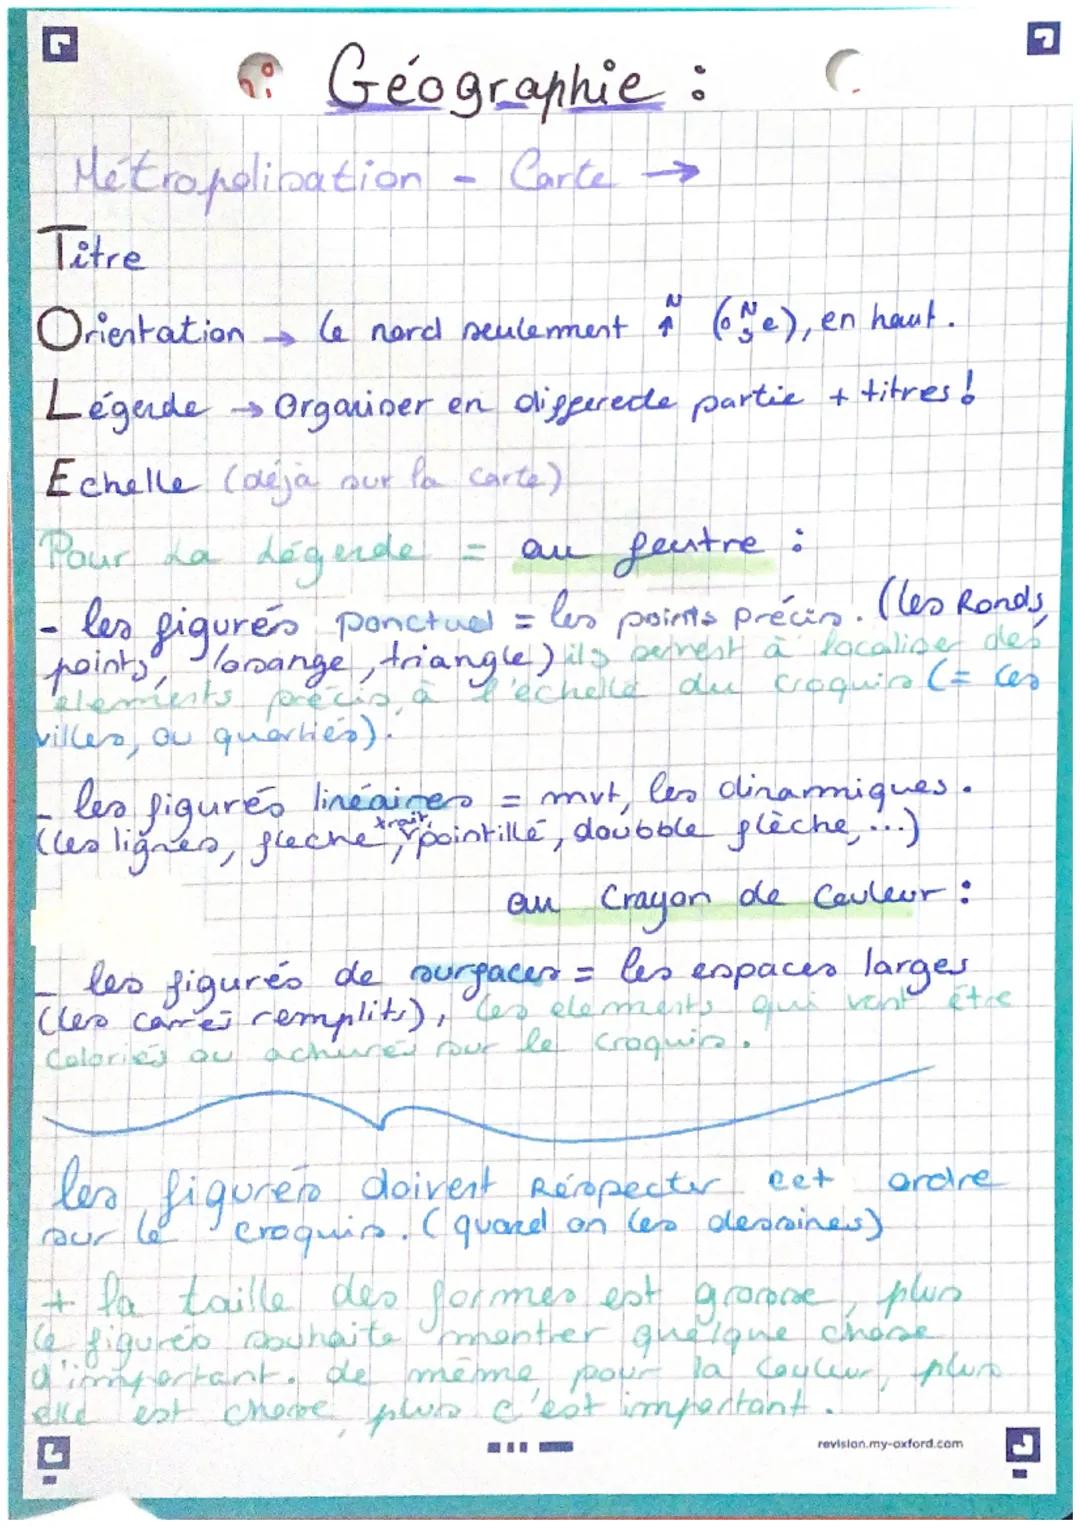 Géographie :
Métropolisation - Carte →
Titre
Orientation → le nord seulement N ↑ (o N S e), en haut.
Légende → Organiser en differede partie + titres !
Echelle (déjà sur la carte)
Pour La Légende = au feutre :
- les figurés ponctuel = les points précis. (les Ronds,
points, losange, triangle) ils servent à localiser des
elements précis, à l'échelle du croquis (= les
villes, ou quartiés).
- les figurés linéaires = mvt, les dinamiques.
(les lignes, fleche, trait, pointillé, doubble flèche, ...)
au Crayon de Couleur :
- les figurés de surfaces = les espaces larges
(les carrés remplits), les elements qui vont être
Coloriés ou achurés sur le croquis.
les figurés doivent Réspecter cet ordre
sur le croquis. (quand on les dessines)
+ la taille des formes est grosse, plus
le figurés souhaite montrer quelque chose
d'important. de même pour la Couleur, plus
elle est plus c'est important.
revision.my-oxford.com